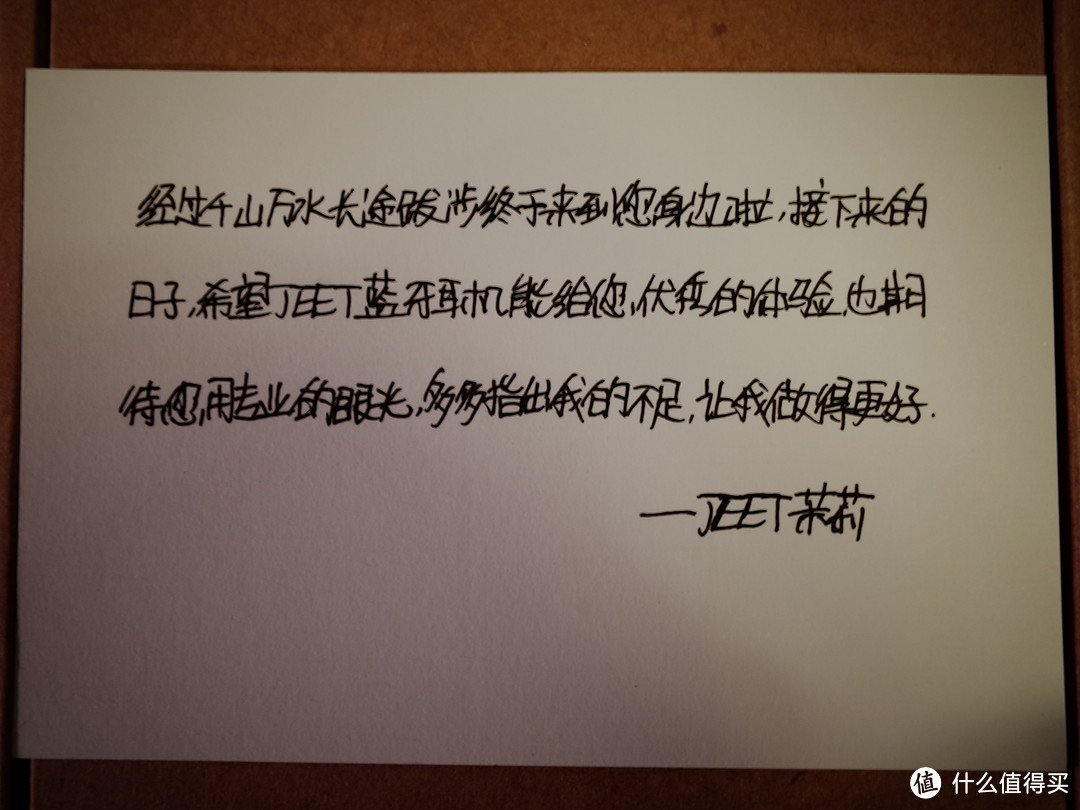 经过千山万水长途跋涉终于来到您身边啦,接下来的
日子,希望JEET蓝牙耳机能给您,优秀的体验,也期
待您用专业的眼光,多多指出我的不足,让我做得更好.
—JEET茉莉
值 什么值得买